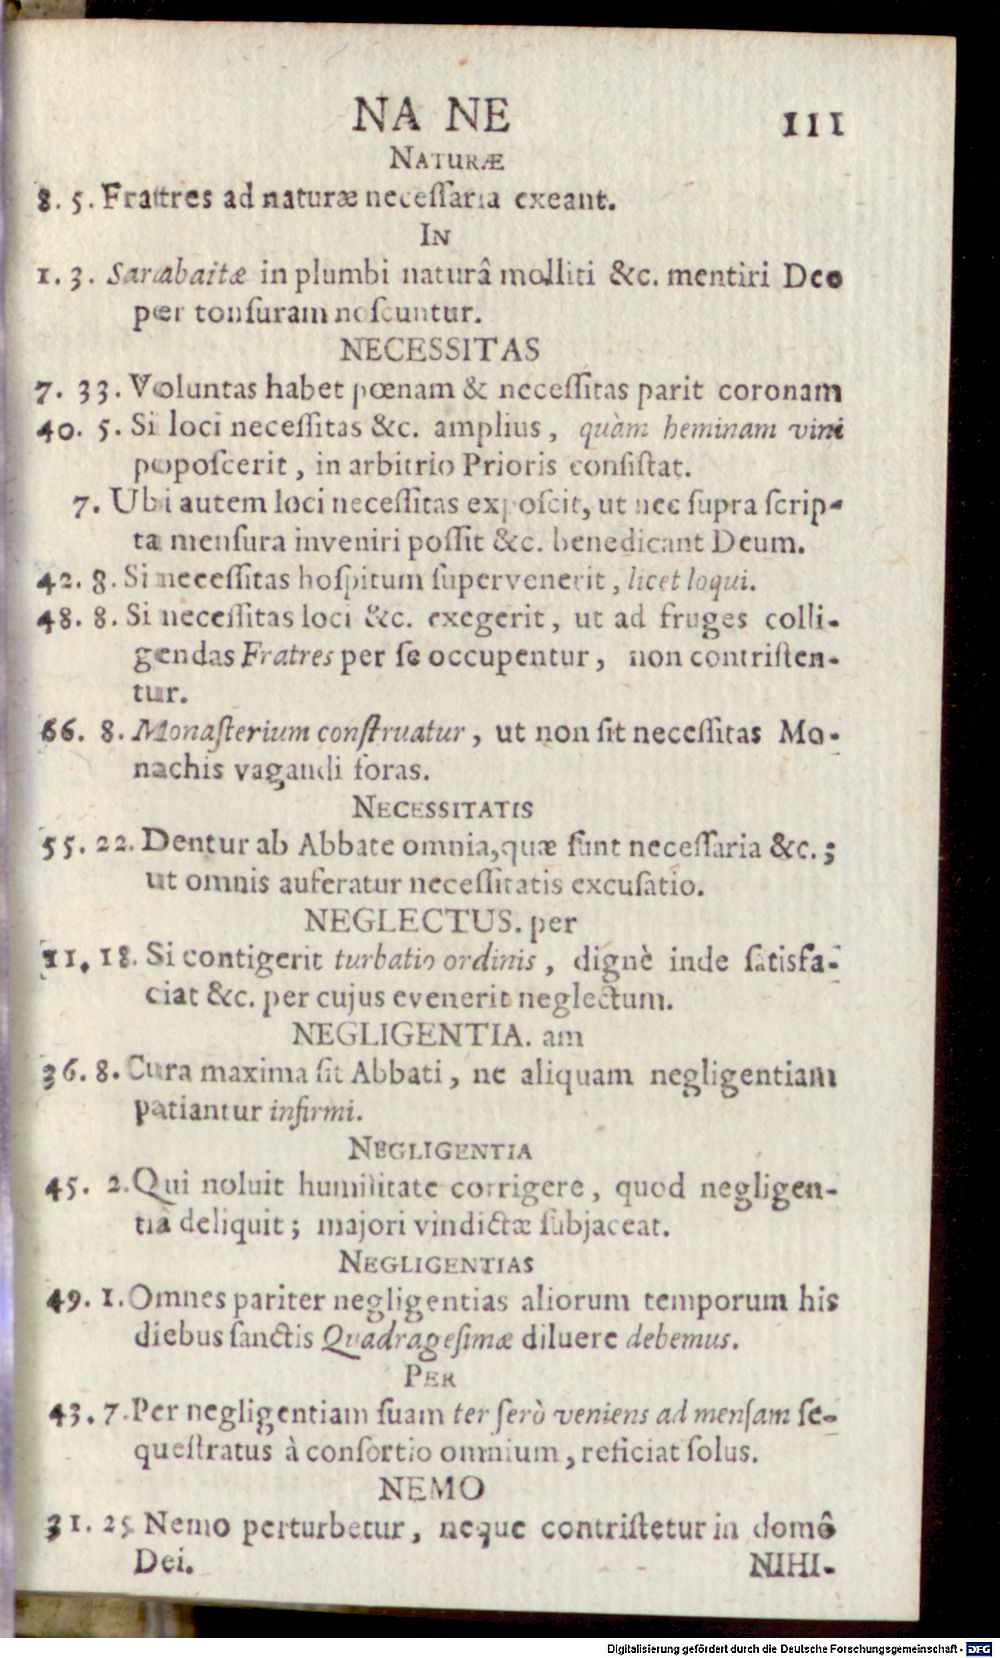 NA NE 111
NATURÆ
8. 5. Frattres ad naturæ neceſſaria exeant.
IN
1. 3. Sarabaitæ in plumbi naturâ molliti &c. mentiri Deo
per tonſuram noſcuntur.
NECESSITAS
7. 33. Voluntas habet pœnam & neceſſitas parit coronam
40. 5. Si loci neceſſitas &c. amplius, quàm heminam vini
popoſcerit, in arbitrio Prioris conſiſtat.
7. Ubi autem loci neceſſitas expoſcit, ut nec ſupra ſcrip-
ta menſura inveniri poſſit &c. benedicant Deum.
42. 8. Si neceſſitas hoſpitum ſupervenerit, licet loqui.
48. 8. Si neceſſitas loci &c. exegerit, ut ad fruges colli-
gendas Fratres per ſe occupentur, non contriſten-
tur.
66. 8. Monaſterium conſtruatur, ut non ſit neceſſitas Mo-
nachis vagandi foras.
NECESSITATIS
55. 22. Dentur ab Abbate omnia, quæ ſunt neceſſaria &c.;
ut omnis auferatur neceſſitatis excuſatio.
NEGLECTUS. per
11. 18. Si contigerit turbatio ordinis, dignè inde ſatisfa-
ciat &c. per cujus evenerit neglectum.
NEGLIGENTIA. am
36. 8. Cura maxima ſit Abbati, ne aliquam negligentiam
patiantur infirmi.
NEGLIGENTIA
45. 2. Qui noluit humilitate corrigere, quod negligen-
tiâ deliquit; majori vindictæ ſubjaceat.
NEGLIGENTIAS
49. 1. Omnes pariter negligentias aliorum temporum his
diebus ſanctis Quadrageſimæ diluere debemus.
PER
43. 7. Per negligentiam ſuam ter ſerò veniens ad menſam ſe-
queſtratus à conſortio omnium, reficiat ſolus.
NEMO
31. 25. Nemo perturbetur, neque contriſtetur in domô
Dei. NIHI-
Digitalisierung gefördert durch die Deutsche Forschungsgemeinschaft - DFG